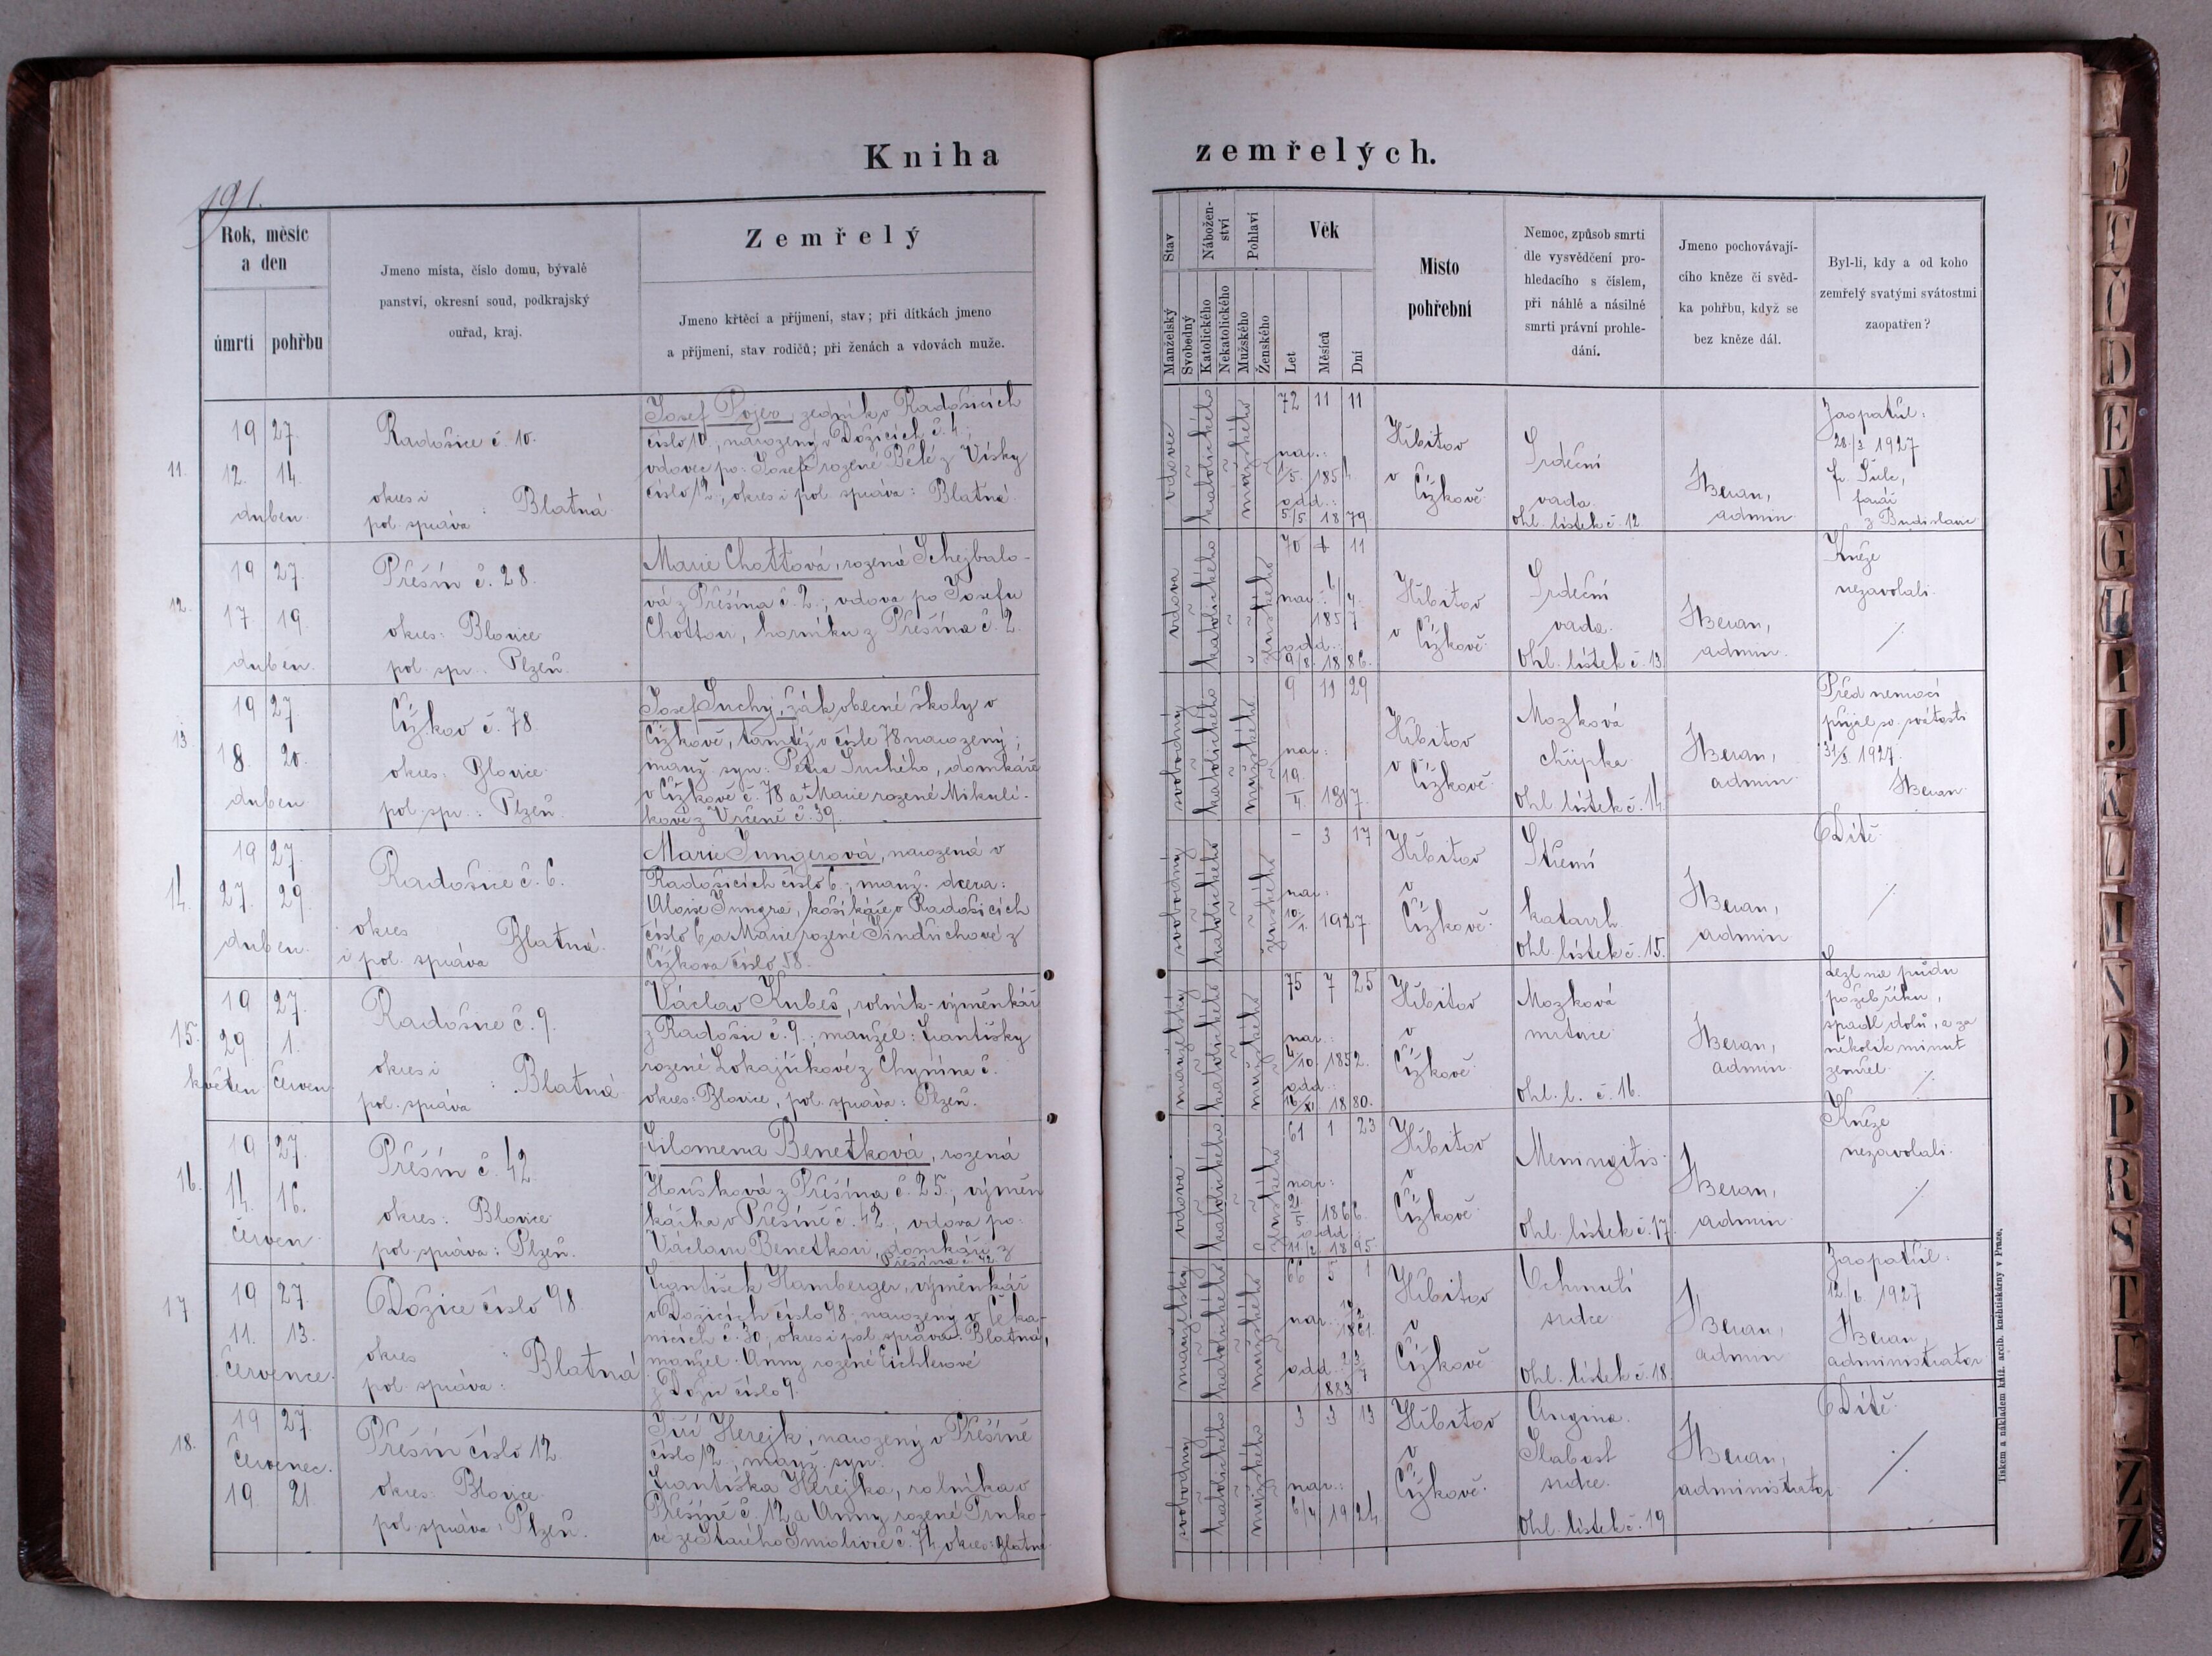 Kniha zemřelých.
191.
Rok, měsíc
a den
úmrtí
pohřbu
Jmeno místa, číslo domu, bývalé
panství, okresní soud, podkrajský
ouřad, kraj.
Zemřelý
Jmeno křtěcí a příjmení, stav; při dítkách jmeno
a příjmení, stav rodičů; při ženách a vdovách muže.
Stav
Nábožen-
ství
Pohlaví
Věk
Manželský
Svobodný
Katolického
Nekatolického
Mužského
Ženského
Let
Měsíců
Dní
Místo
pohřební
Nemoc, způsob smrti
dle vysvědčení pro-
hledacího s číslem,
při náhlé a násilné
smrti právní prohle-
dání.
Jmeno pochovávají-
cího kněze či svěd-
ka pohřbu, když se
bez kněze dál.
Byl-li, kdy a od koho
zemřelý svatými svátostmi
zaopatřen?
11.
19 27.
12. 14.
duben.
Radošice č. 10.
okres i
pol. správa : Blatná
Josef Pojer, zedník v Radošicích
číslo 10, narozený v Dožicích č. 4.;
vdovec po: Josefě rozené Bělé z Vísky
číslo 12., okres i pol. správa: Blatná.
vdovec
katolického
mužského
72 11 11
nar.:
1/5. 1854
odd.:
5/5 1879
Hřbitov
v
Čížkově.
Srdeční
vada.
Ohl. lístek č. 12.
Beran,
admin.
Zaopatřil:
28./3. 1927
fr. Šulc,
farář
z Budislavic
12.
19 27.
17. 19.
duben.
Přešín č. 28.
okres: Blovice
pol. spr.: Plzeň.
Marie Chottová, rozená Schejbalo-
vá z Přešína č. 2., vdova po Josefu
Chottovi, horníku z Přešína č. 2.
vdova
katolického
ženského
70 11
nar.: 6/4.
1857
odd.:
9/8. 1886.
Hřbitov
v
Čížkově.
Srdeční
vada.
Ohl. lístek č. 13.
Beran,
admin.
Kněze
nezavolali.
13.
19 27.
18. 20.
duben
Čížkov č. 78
okres: Blovice.
pol. spr.: Plzeň.
Josef Suchý, žák obecné školy v
Čížkově, tamtéž v čísle 78 narozený;
manž. syn: Petra Suchého, domkáře
v Čížkově č. 78 a Marie rozené Mikulí-
kové z Vrčeně č. 39.
svobodný
katolického
mužského
9 11 29
nar.:
19.
4. 1917.
Hřbitov
v
Čížkově.
Mozková
chřipka.
Ohl. lístek č. 14.
Beran,
admin.
Před nemocí
přijal sv. svátosti
31/3. 1927.
Beran.
14.
19 27.
27. 29.
duben.
Radošice č. 6.
okres
i pol. správa Blatná.
Marie Jungerová, narozená v
Radošicích číslo 6., manž. dcera:
Aloise Jungra, košíkáře v Radošicích
číslo 6 a Marie rozené Jindřichové z
Čížkova číslo 58.
svobodný
katolického
ženského
– 3 17
nar.:
10/1. 1927
Hřbitov
v
Čížkově.
Střevní
katarrh
Ohl. lístek č. 15.
Beran,
admin.
Dítě.
15.
19 27.
29. 1.
květen červen
Radošice č. 9.
okres i
pol. správa : Blatná
Václav Kubeš, rolník-výměnkář
z Radošic č. 9., manžel: Františky
rozené Lokajíčkové z Chynína č.
okres: Blovice, pol. správa: Plzeň.
manželský
katolického
mužského
75 7 25
nar.:
4/10. 1852.
odd.:
16/XI 1880.
Hřbitov
v
Čížkově.
Mozková
mrtvice.
Ohl. l. č. 16.
Beran,
admin.
Lezl na půdu
po žebříku,
spadl dolů, a za
několik minut
zemřel.
16.
19 27.
14. 16.
červen
Přešín č. 42.
okres: Blovice
pol. správa: Plzeň.
Filomena Benetková, rozená
Houšková z Přešína č. 25., výměn
kářka v Přešíně č. 42., vdova po:
Václavu Benetkovi, domkáři z
Přešína č. 42.
vdova
katolického
ženského
61 1 23
nar.:
21/5 1866.
odd.
11/2. 1895.
Hřbitov
v
Čížkově.
Meningitis.
Ohl. lístek č. 17.
Beran,
admin.
Kněze
nezavolali.
17
19 27.
11. 13.
července.
Dožice číslo 98.
okres
pol. správa : Blatná
František Hamberger, výměnkář
v Dožicích číslo 98., narozený v Čeka-
nicích č. 30, okres i pol. správa: Blatná,
manžel: Anny rozené Eichlerové
z Dožic číslo 9.
manželský
katolického
mužského
66 5 1
nar.: 10/2.
1861.
odd. 23/7
1883.
Hřbitov
v
Čížkově
Ochrnutí
srdce
Ohl. lístek č. 18.
Beran,
admin
Zaopatřil:
12./6. 1927
Beran,
administrator
18.
19 27.
červenec.
19. 21.
Přešín číslo 12.
okres: Blovice.
pol. správa: Plzeň.
Jiří Herejk, narozený v Přešíně
číslo 12.; manž. syn:
Františka Herejka, rolníka v
Přešíně č. 12 a Anny rozené Trnko-
vé ze Starého Smolivce č. 74, okres: Blatná.
svobodný
katolického
mužského
3 3 13
nar.:
6/4 1924.
Hřbitov
v
Čížkově.
Angina.
Slabost
srdce.
Ohl. lístek č. 19
Beran,
administrator
Dítě.
Tiskem a nákladem kníž. arcib. knihtiskárny v Praze.
B
C
Č
D
E
F
G
H
I
J
K
L
M
N
O
P
R
S
T
U
Z
Z